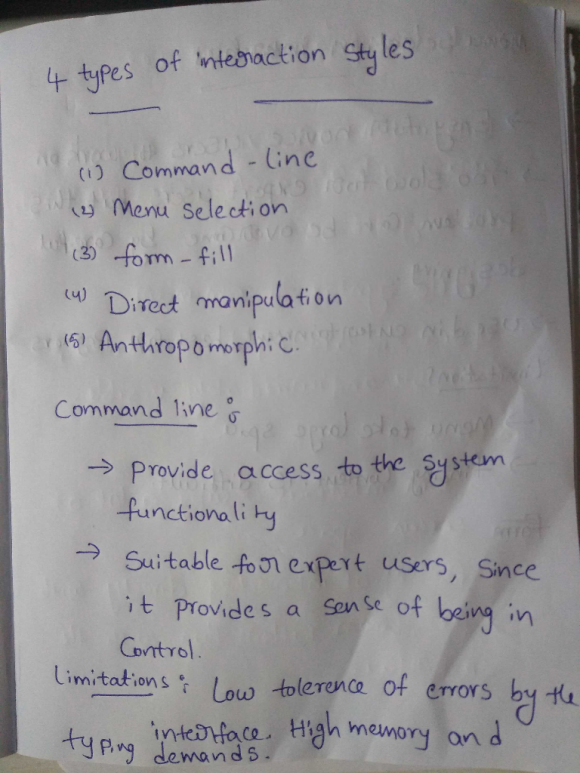 4 types of interaction styles
(1) Command-line
(2) Menu selection
(3) form-fill
(4) Direct manipulation
(5) Anthropomorphic.
Command line :
→ provide access to the system
functionality
→ Suitable for expert users, Since
it provides a sense of being in
Control.
limitations : Low tolerence of errors by the
typing interface. High memory and
demands.